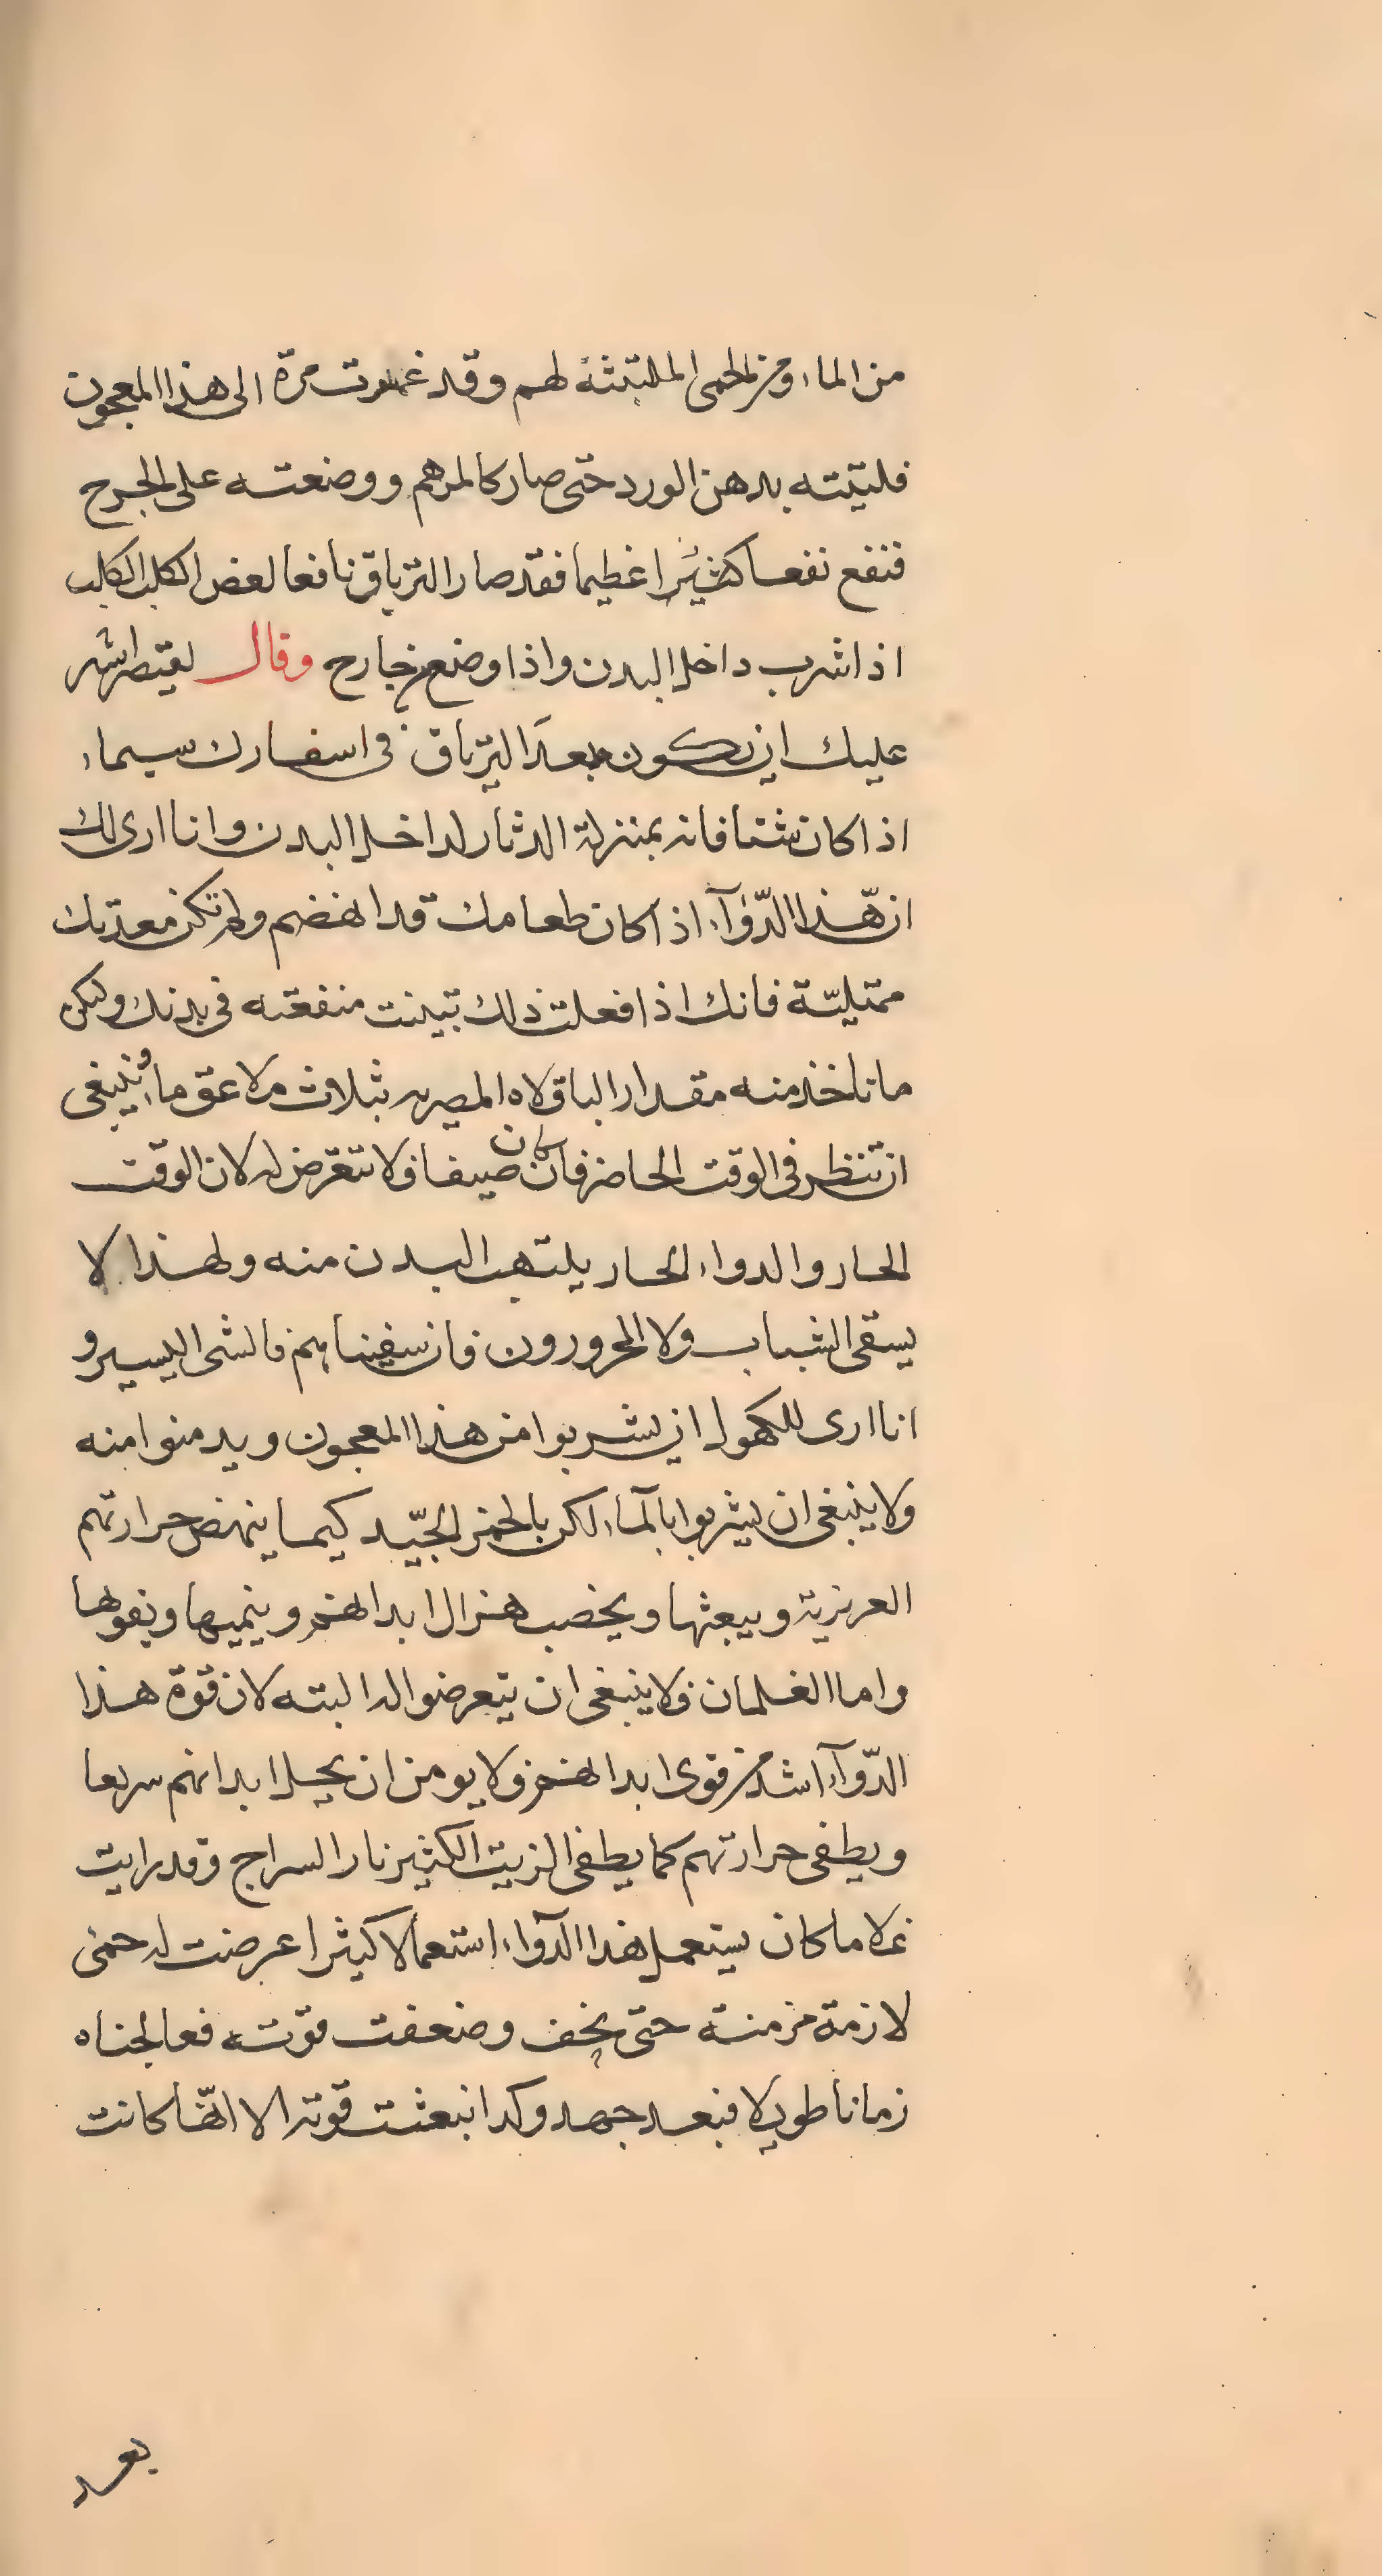 من الماء ومن الحمى الملتبثة لهم وقد عمدت مرة الى هذا المعجون
فليتته بدهن الورد حتى صار كالمرهم ووضعته على الجرح
فنفع نفعا كثيرا عظيما فقد صار الترياق نافعا لعض الكلب الكلب
اذا شرب داخل البدن واذا وضع من خارج وقال لقيصر اشير
عليك ان يكون معك الترياق في اسفارك سيماء
اذا كان شتا فانه بمنزلة الدثار لداخل البدن وانا ارى لك
ان هذا الدواء اذا كان طعامك قد انهضم ولم تكن معدتك
ممتليّة فانك اذا فعلت ذلك تبينت منفعته في بدنك وليكن
ما تاخذ منه مقدار الباقلاه المصريه بثلاث ملاعق ماء وينبغى
ان تنظر في الوقت الحاضر فان كان صيفا فلا تتعرض له لان الوقت
الحار والدواء الحار يلتهب البدن منه ولهذا لا
يسقى الشباب ولا المحرورون فان سقيناهم فالشى اليسير و
انا ارى للكهول ان يشربوا من هذا المعجون ويدمنوا منه
ولا ينبغى ان يشربوا بالماء لكن بالخمر الجيّد كيما ينهض حرارتهم
العزيزية ويبعثها ويخصب هزال ابدانهم وينميها ويقويها
واما الغلمان فلا ينبغى ان يتعرضوا له البته لان قوة هذا
الدّوآء اشد من قوى ابدانهم ولا يومن ان يحل ابدانهم سريعا
ويطفى حرارتهم كما يطفى الزيت الكثير نار السراج وقد رايت
غلاما كان يستعمل هذا الدواء استعمالا كثيرا عرضت له حمى
لازمة مزمنة حتى نحف وضعفت قوته فعالجناه
زمانا طويلا فبعد جهد وكد انبعثت قوته الا انها كانت
بعد